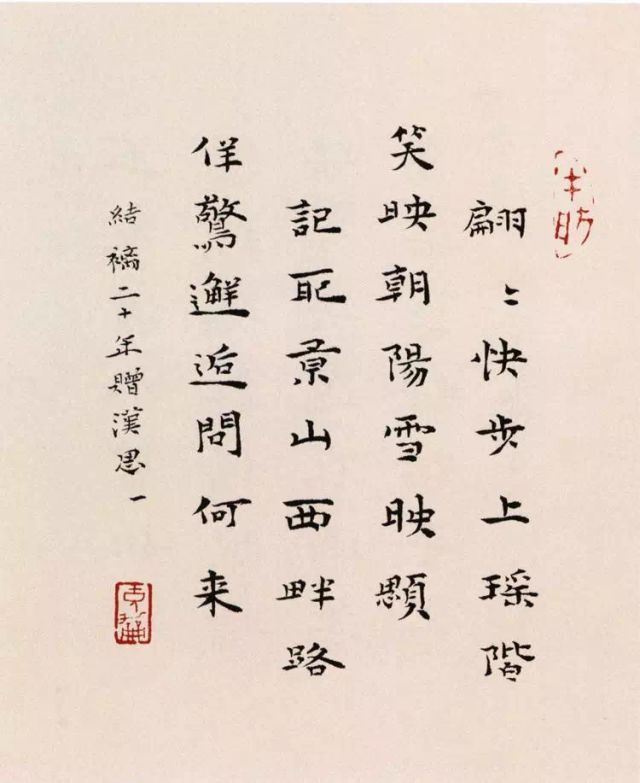 翩〻快步上瑤階
笑映朝陽雪映顋
記取景山西畔路
佯驚邂逅問何來
結褵二十年贈漢思 一
充龢